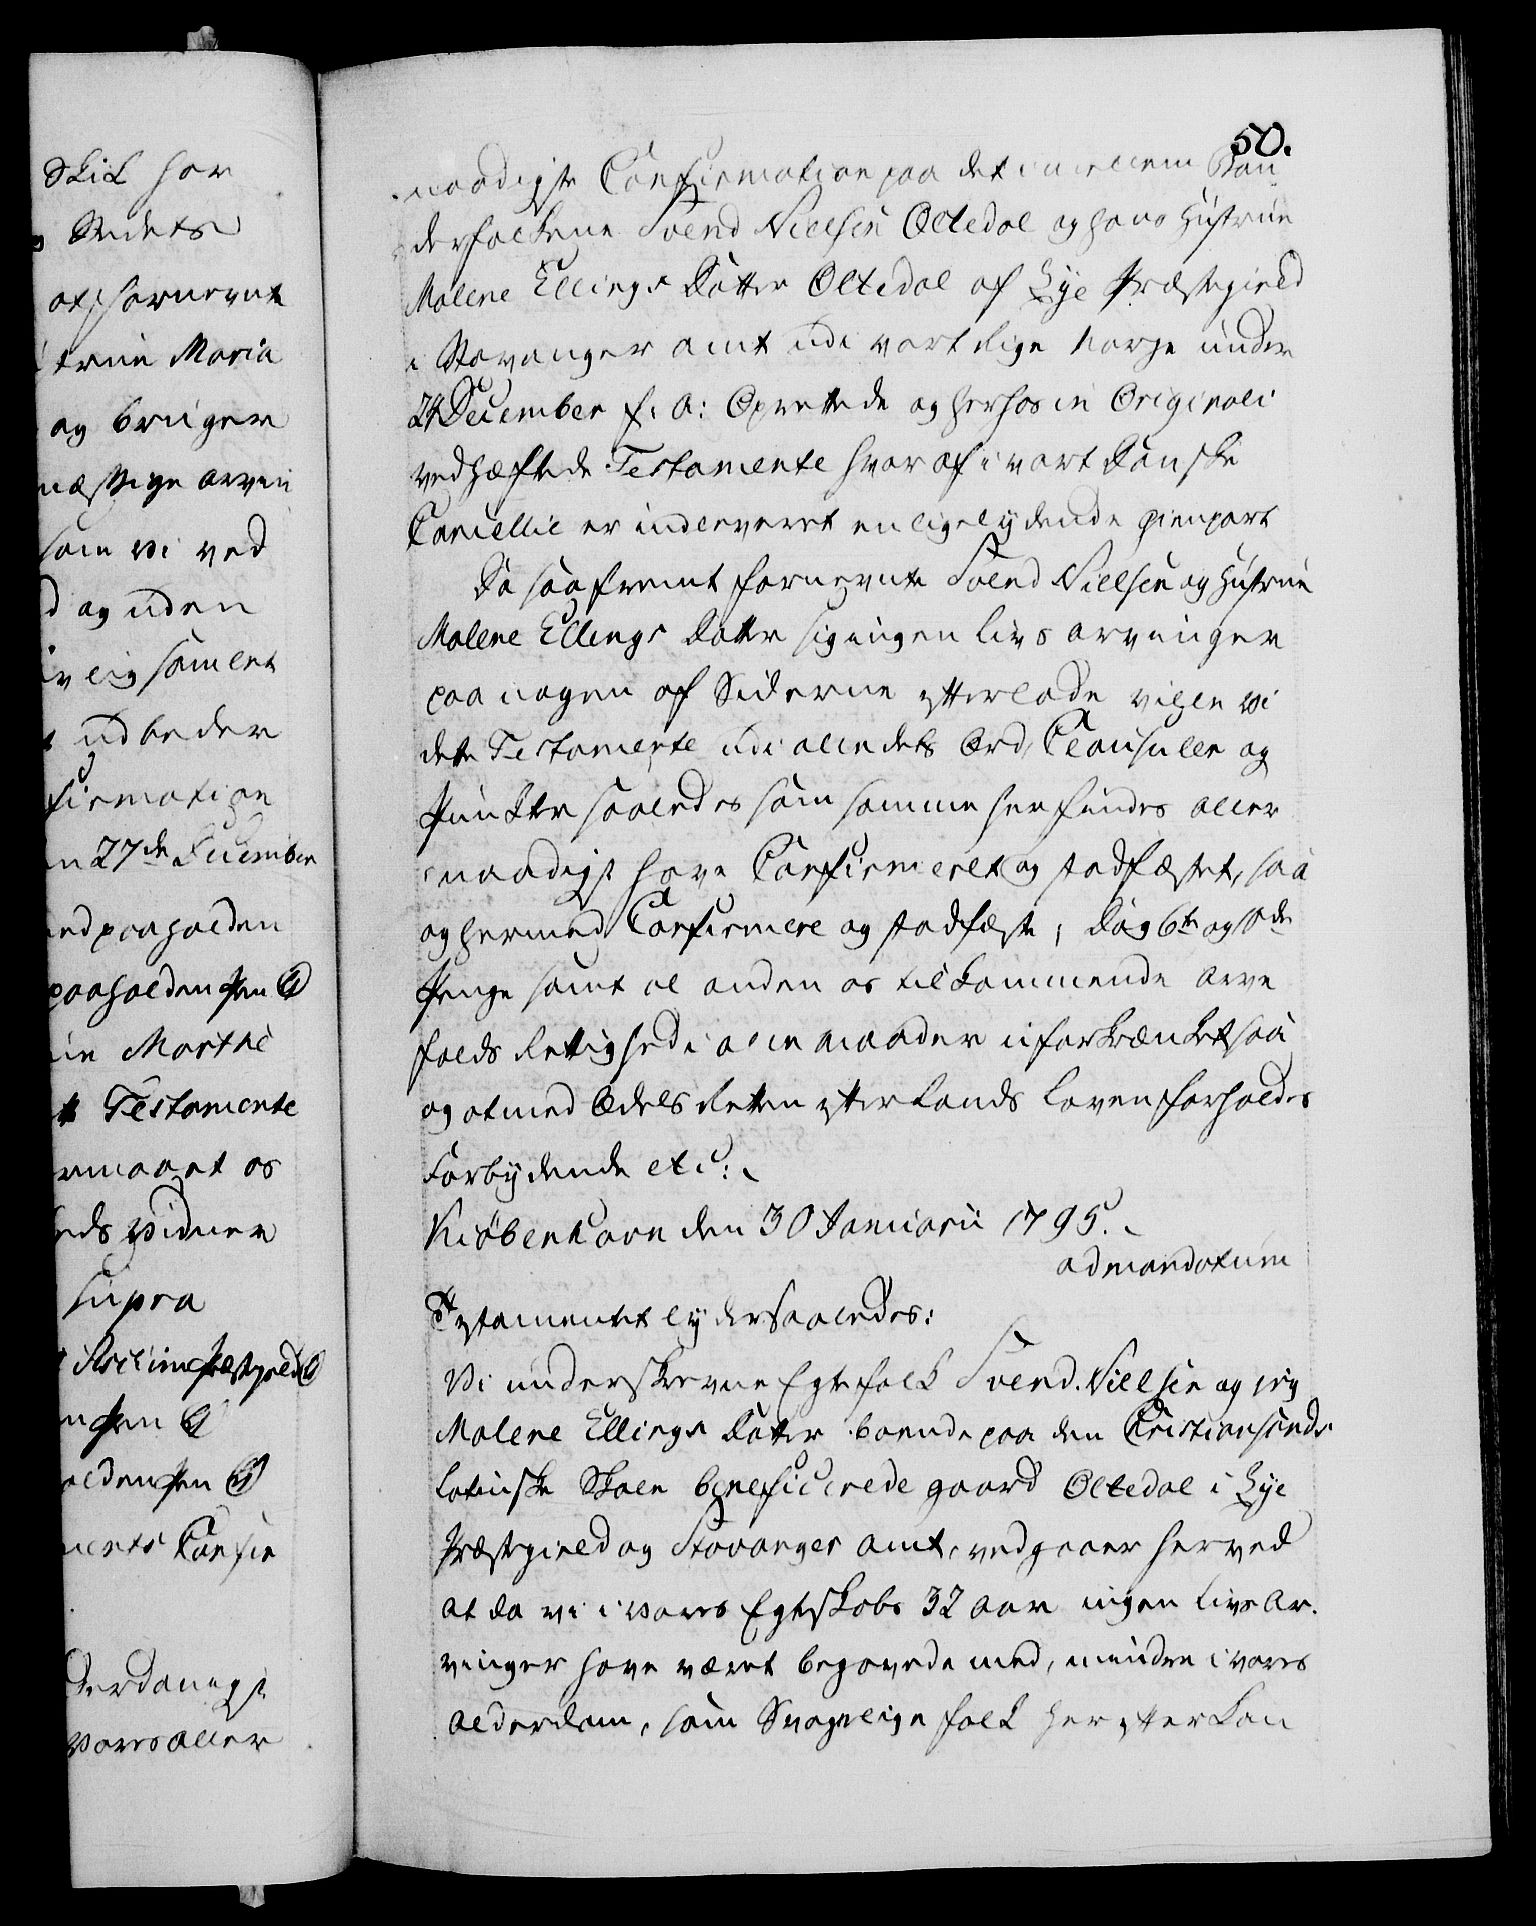 50.
naadigste Confirmation paa det imellem Bon
derfolkene Svend Nielsen Oltedal og hans Hustrue
Malene Ellings Datter Oltedal af Lye Præstegield
i Stavanger amt udi vort Rige Norge under
24 December f: A: Oprettede og herhos in Originali
vedhæftede Testamente hvoraf i vort Danske
Cancellie er indleveret en ligelydende gienpart
Da saafremt fornevnte Svend Nielsen og Hustrue
Malene Ellings Datter sig ingen livs arvinger
paa nogen af Siderne efterlade ville vi
dette Testamente udi alle dets Ord, Clausuler og
Puncter saaledes som samme her findes aller
naadigst have Confirmeret og stadfæstet, saa
og hermed Confirmere og stadfæste; Dog 6te og 10de
Penge samt al anden os tilkommende arve
falds Rettighed i alle maader uforkrænket saa
og at med Odels Retten efter Lands Loven forholdes
Forbydende etc:
Kiøbenhavn den 30 Januarii 1795.
ad mandatum
Testamentet lyder saaledes:
Vi underskrevne Egtefolk Svend Nielsen og jeg
Malene Ellings Datter boende paa den Christiansands
latinske Skole beneficerede gaard Oltedal i Lye
Præstegield og Stavanger amt, vedgaaer herved
at da vi i vores Egteskabs 32 aar ingen livs Ar.
vinger have været begavede med, mindre i vores
alderdom, som Svagelige folk her efter kan
Skik har
Stedets
at fornevnte
true Maria
og bruger
mæssige arven
som vi ved
d og uden
samlet
udbeder
firmation
n 27de December
ed paaholden
paaholden Pen
Marthe
Testamente
rmaaet os
eds vidner
supra
Pen
olden Pen
ments Confir
Aerdanigst
vores aller